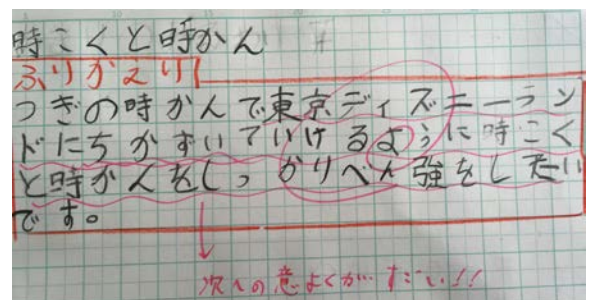 時こくと時かん
ふりかえり
つぎの時かんで東京ディズニーラン
ドにちかずいていけるように時こく
と時かんをしっかりべん強をしたい
です。
次への意よくがすごい!!